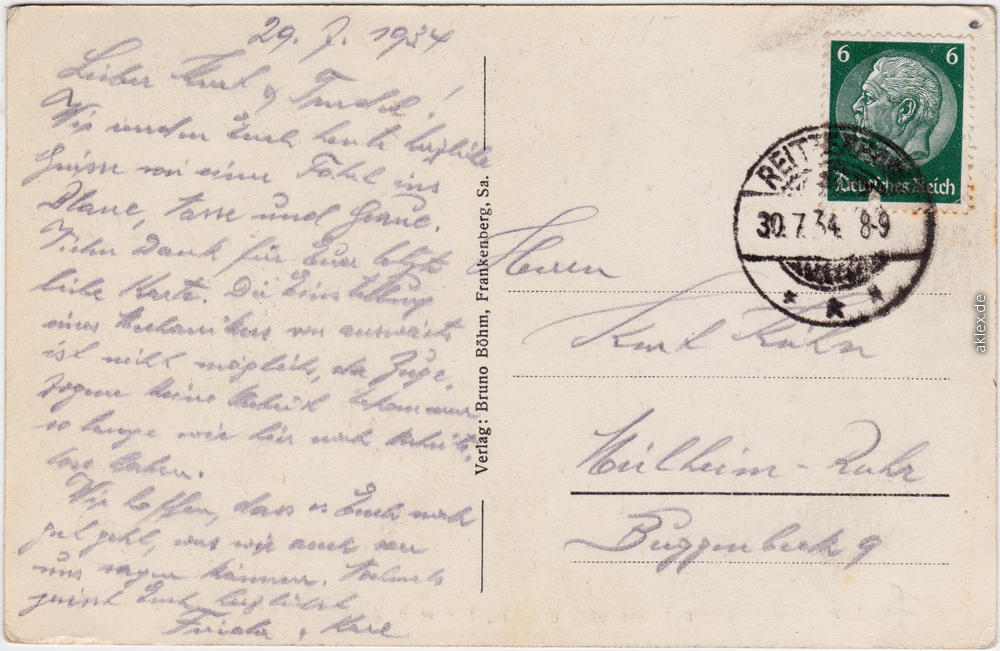 29. 7. 1934
Lieber Kurt & Trudel!
Wir senden Euch heute herzliche
Grüsse von einer Fahrt ins
Blaue, und
Vielen Dank für Eure letzte
liebe Karte. Die Einstellung
eines Mechanikers von auswärts
ist nicht möglich, da Zuge-
zogene keine Arbeit bekommen
so lange wir hier noch Arbeits-
lose haben.
Wir hoffen, dass es Euch noch
gut geht, was wir auch von
uns sagen können. Nochmals
grüsst Euch herzlichst
Frieda & Karl
Verlag: Bruno Böhm, Frankenberg, Sa.
6 6
Deutsches Reich
30.7.34. 8-9
Herrn
Kurt Kühn
Mülheim-Ruhr
Buggenbeck 9
aklex.de